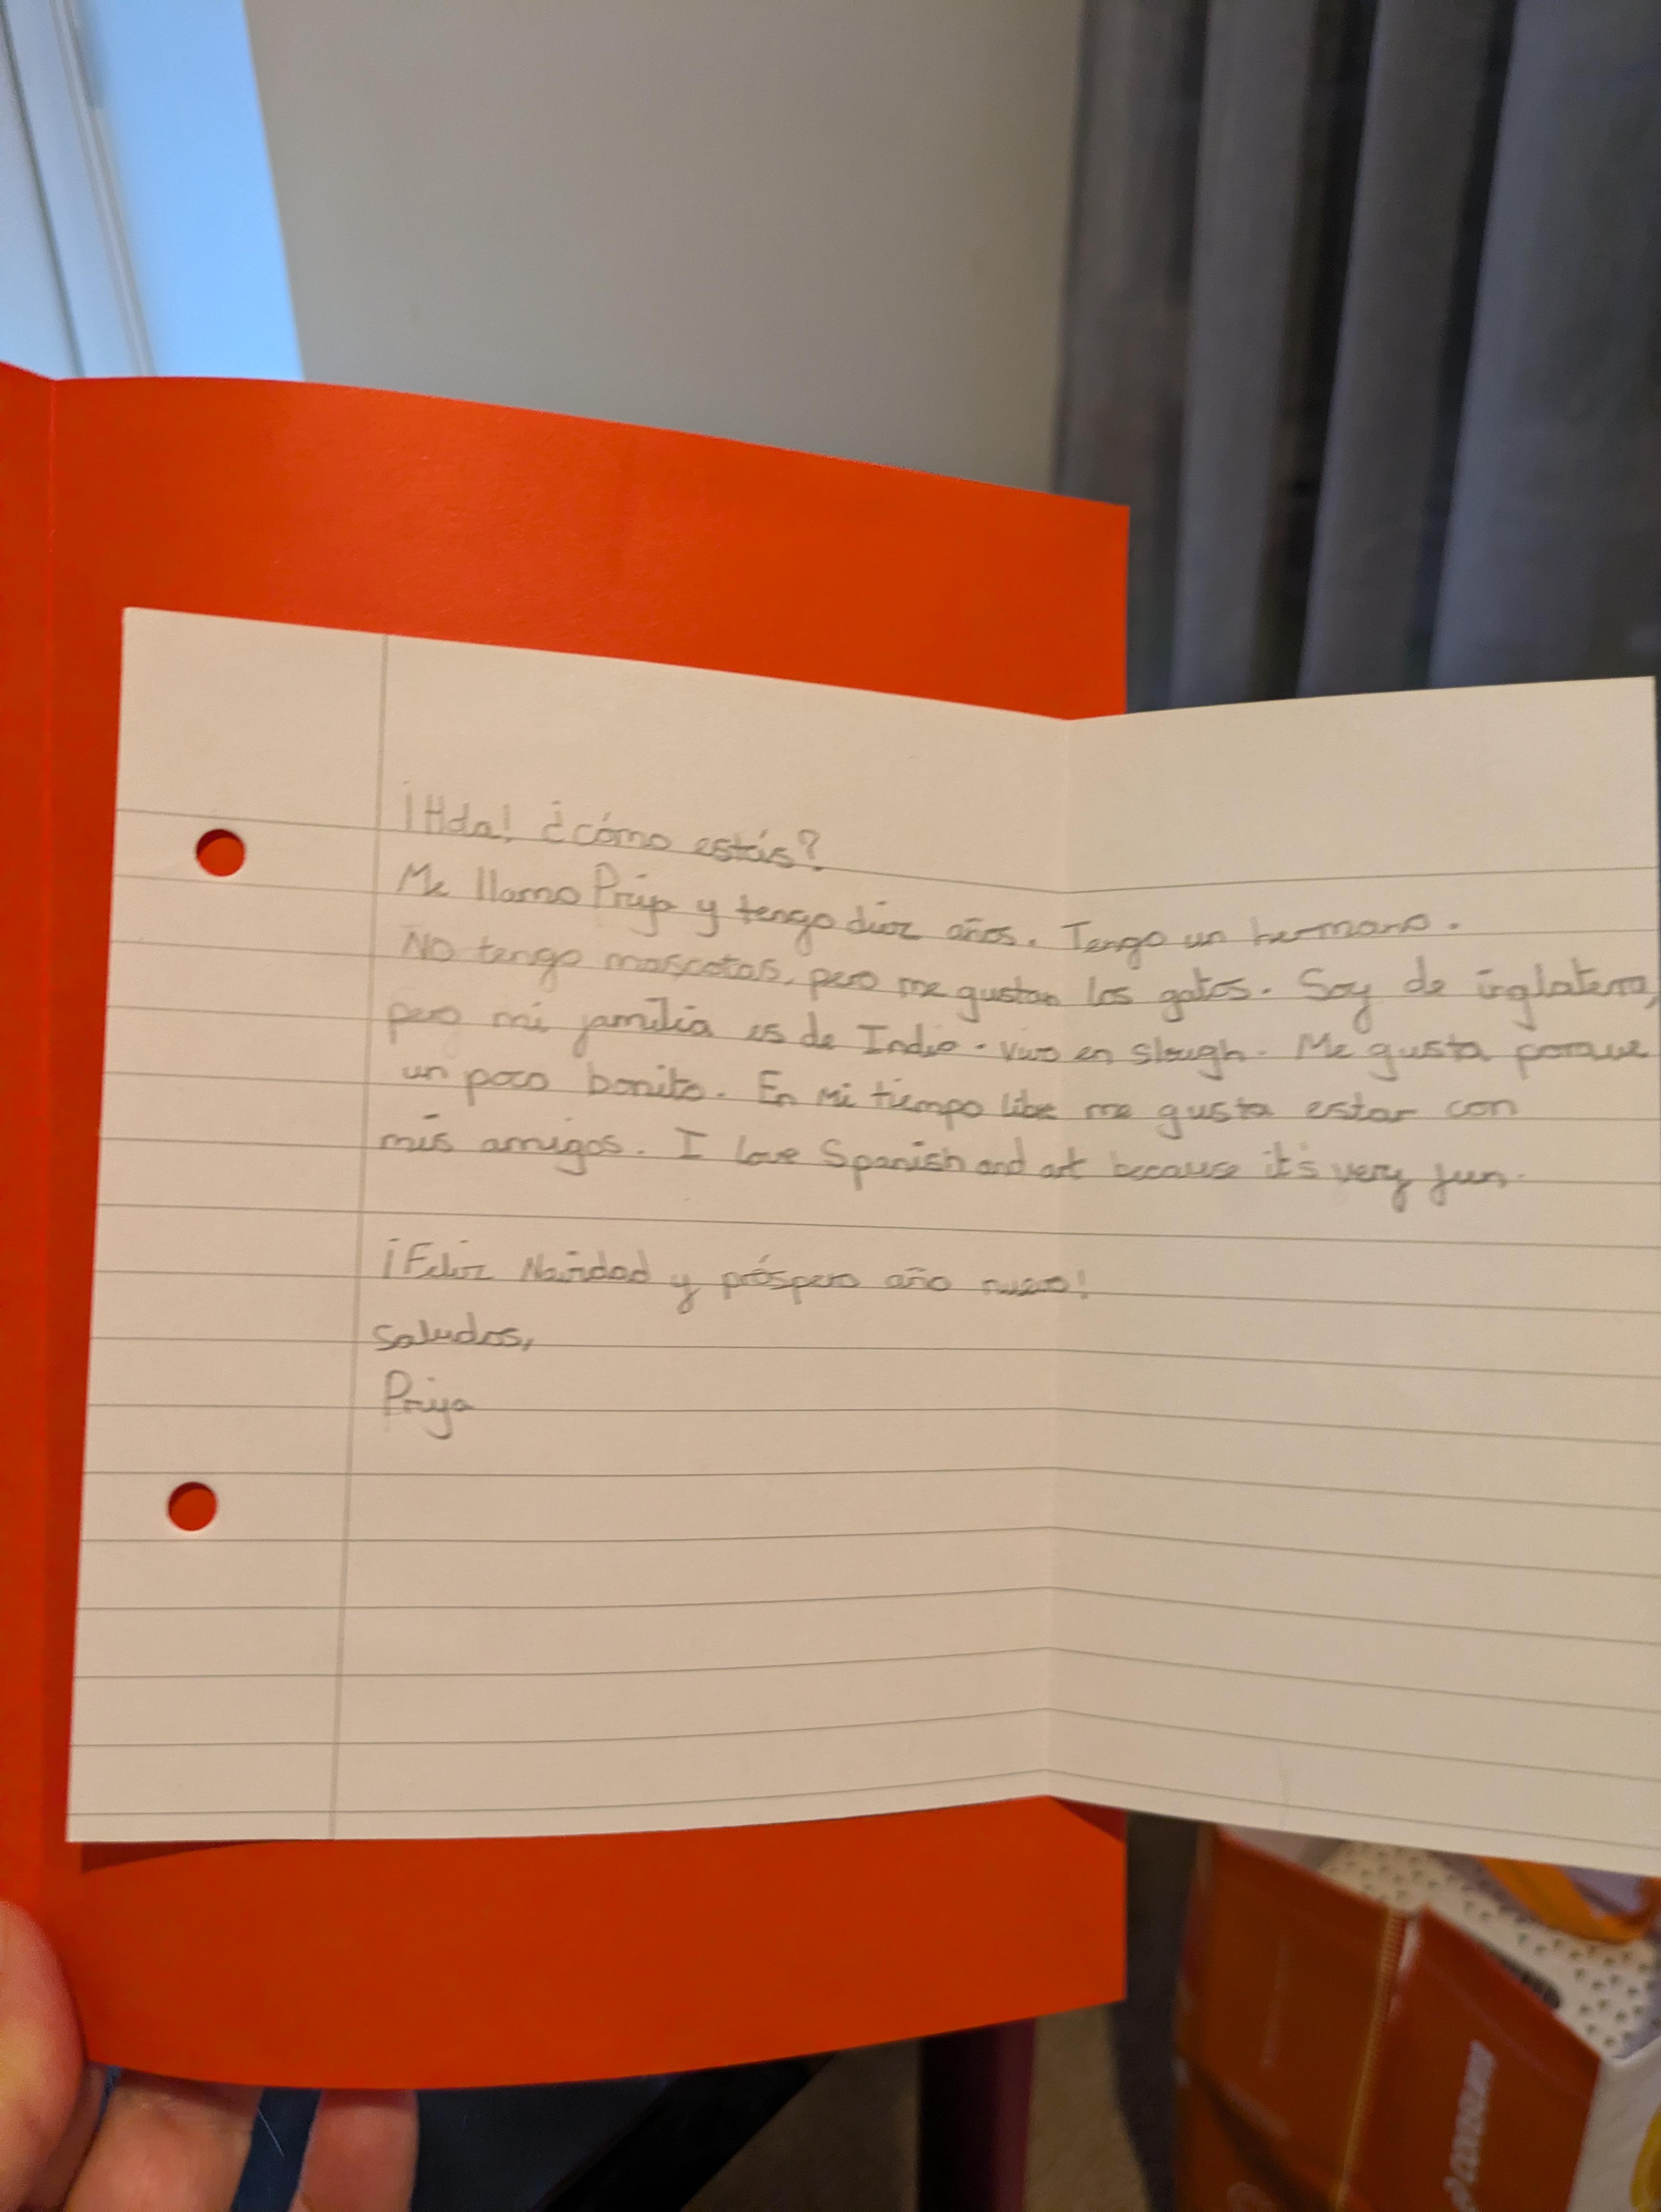 ¡Hola! ¿cómo estás?
Me llamo Priya y tengo diez años. Tengo un hermano.
No tengo mascotas, pero me gustan los gatos. Soy de inglaterra,
pero mi familia es de India. vivo en slough. Me gusta porque
un poco bonito. En mi tiempo libre me gusta estar con
mis amigos. I love Spanish and art because it's very fun.
¡Feliz Navidad y próspero año nuevo!
Saludos,
Priya